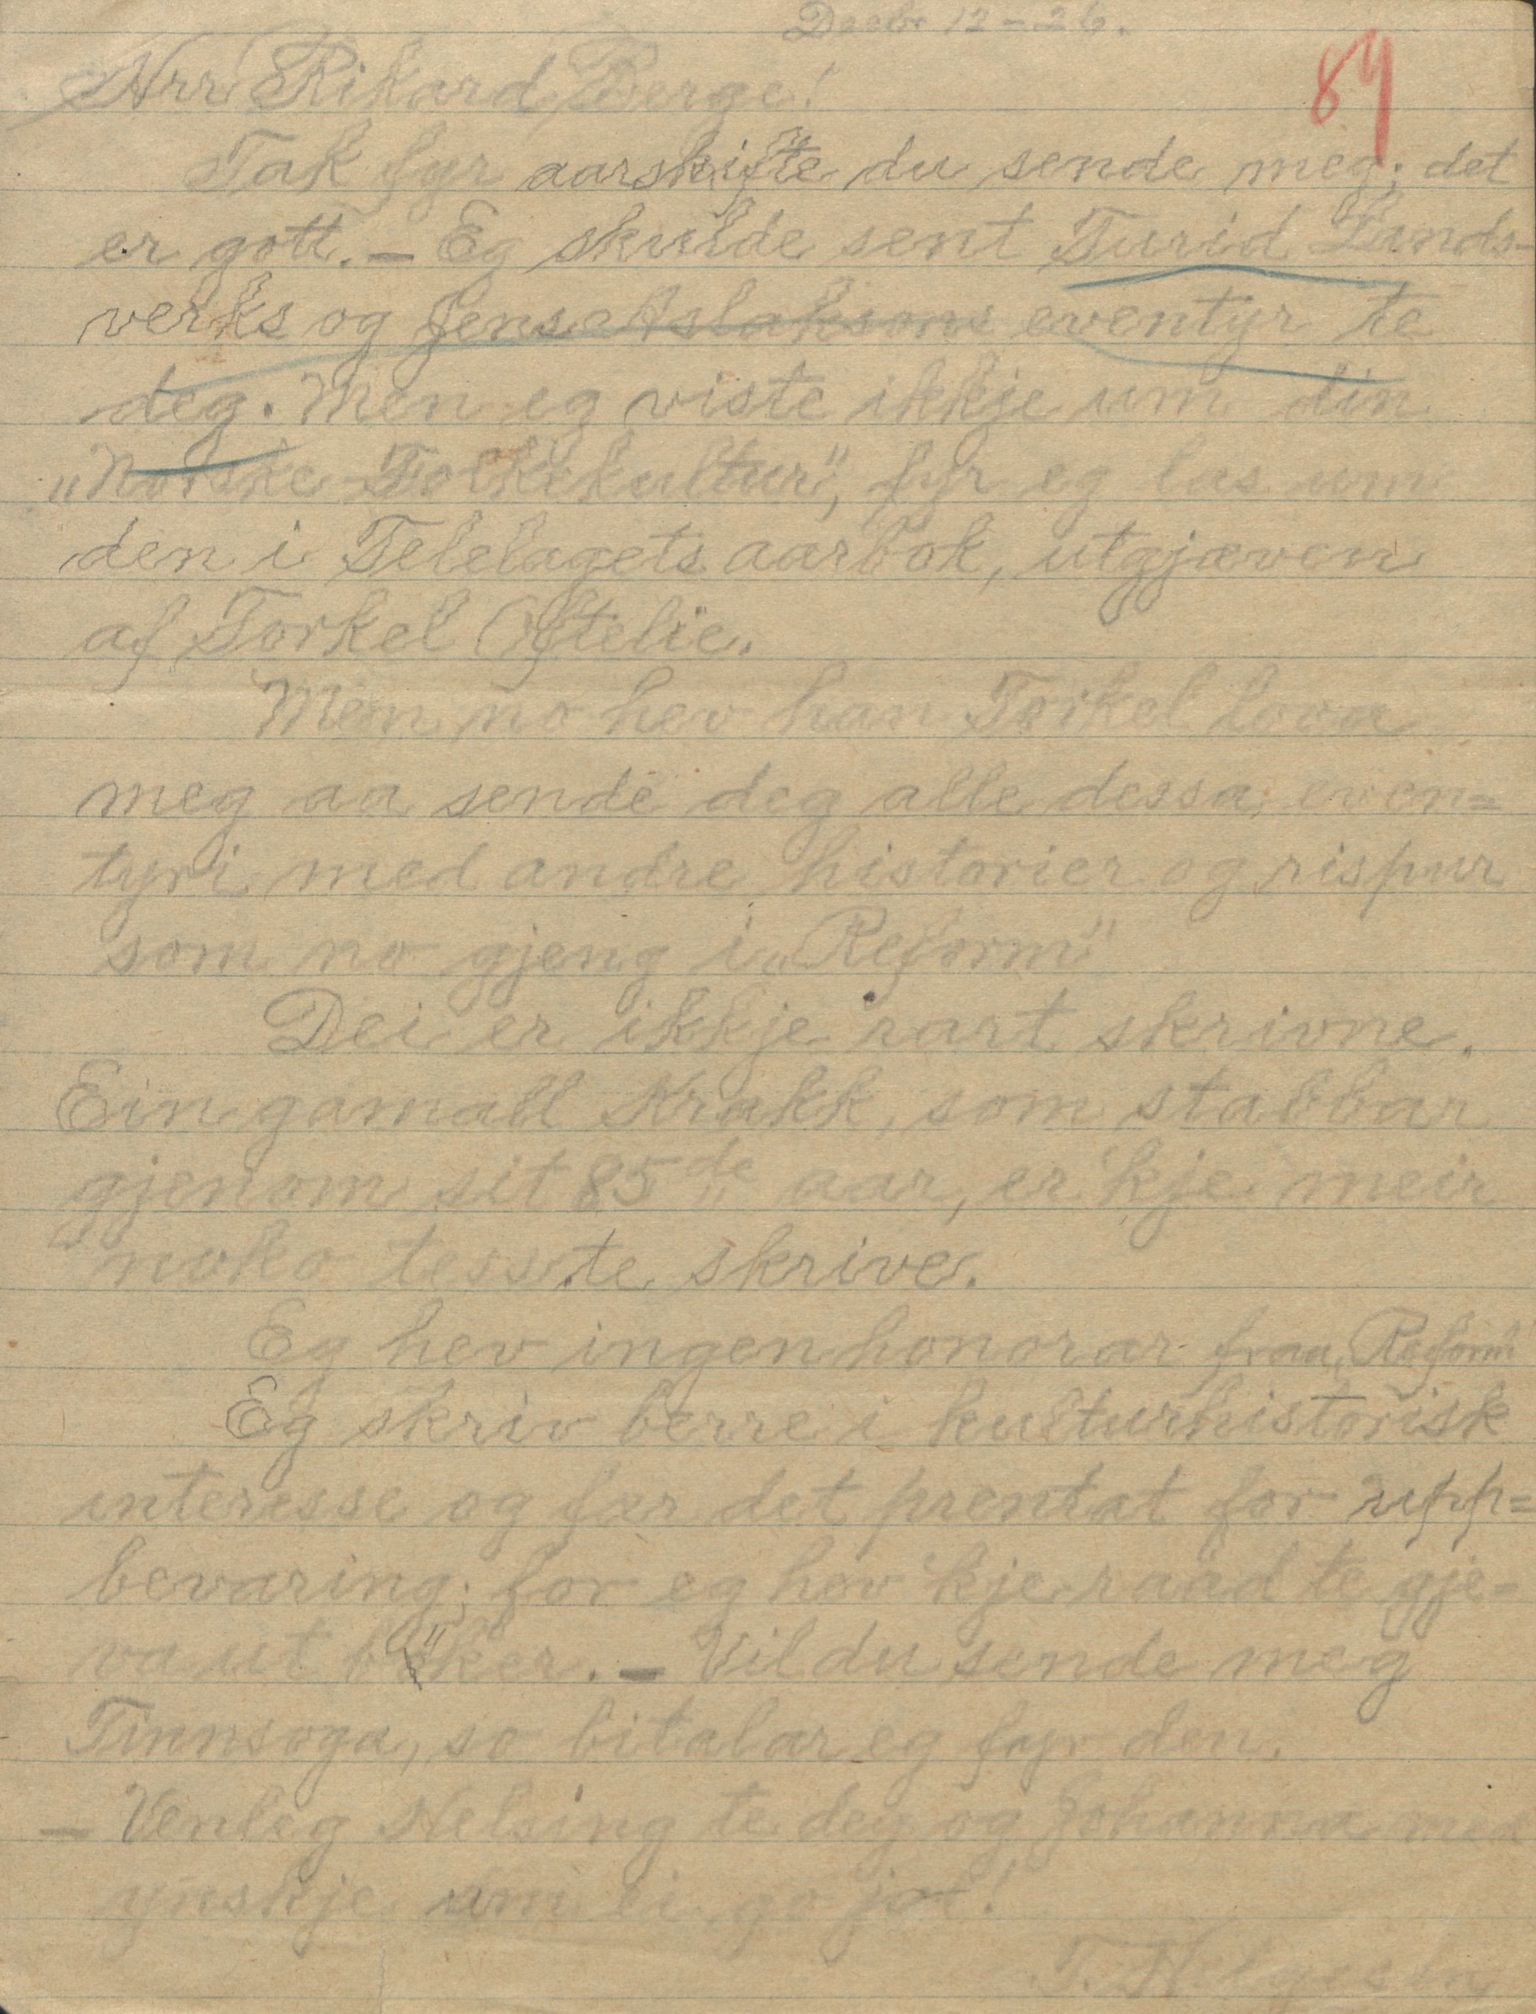 Decbr 12-26.
84
Hrr Rikard Berge!
Tak fyr aarskrifte du sende meg; det
er gott. — Eg skulde sent Turid Lands-
verks og Jens Aslaksons eventyr te
deg. Men eg viste ikkje um din
„Norske Folkekultur", fyr eg las um
den i Telelagets aarbok, utgjæven
af Torkel Oftelie.
Men no hev han Torkel lova
meg aa sende deg alle dessa even=
tyri med andre historier og rispur
som no gjeng i „Reform"
Dei er ikkje rart skrivne.
Ein gamall Krakk, som stabbar
gjenom sit 85de aar, er 'kje meir
noko tess te skrive.
Eg hev ingen honorar fraa „Reform"
Eg skriv berre i kulturhistorisk
interesse og fær det prentat for upp=
bevaring; for eg hev 'kje raad te gje=
va ut böker. — Vil du sende meg
Tinnsoga, so bitalar eg fyr den.
— Venleg Helsing te deg og Johanna med
ynskje um ei go jol!
T. Helgesen